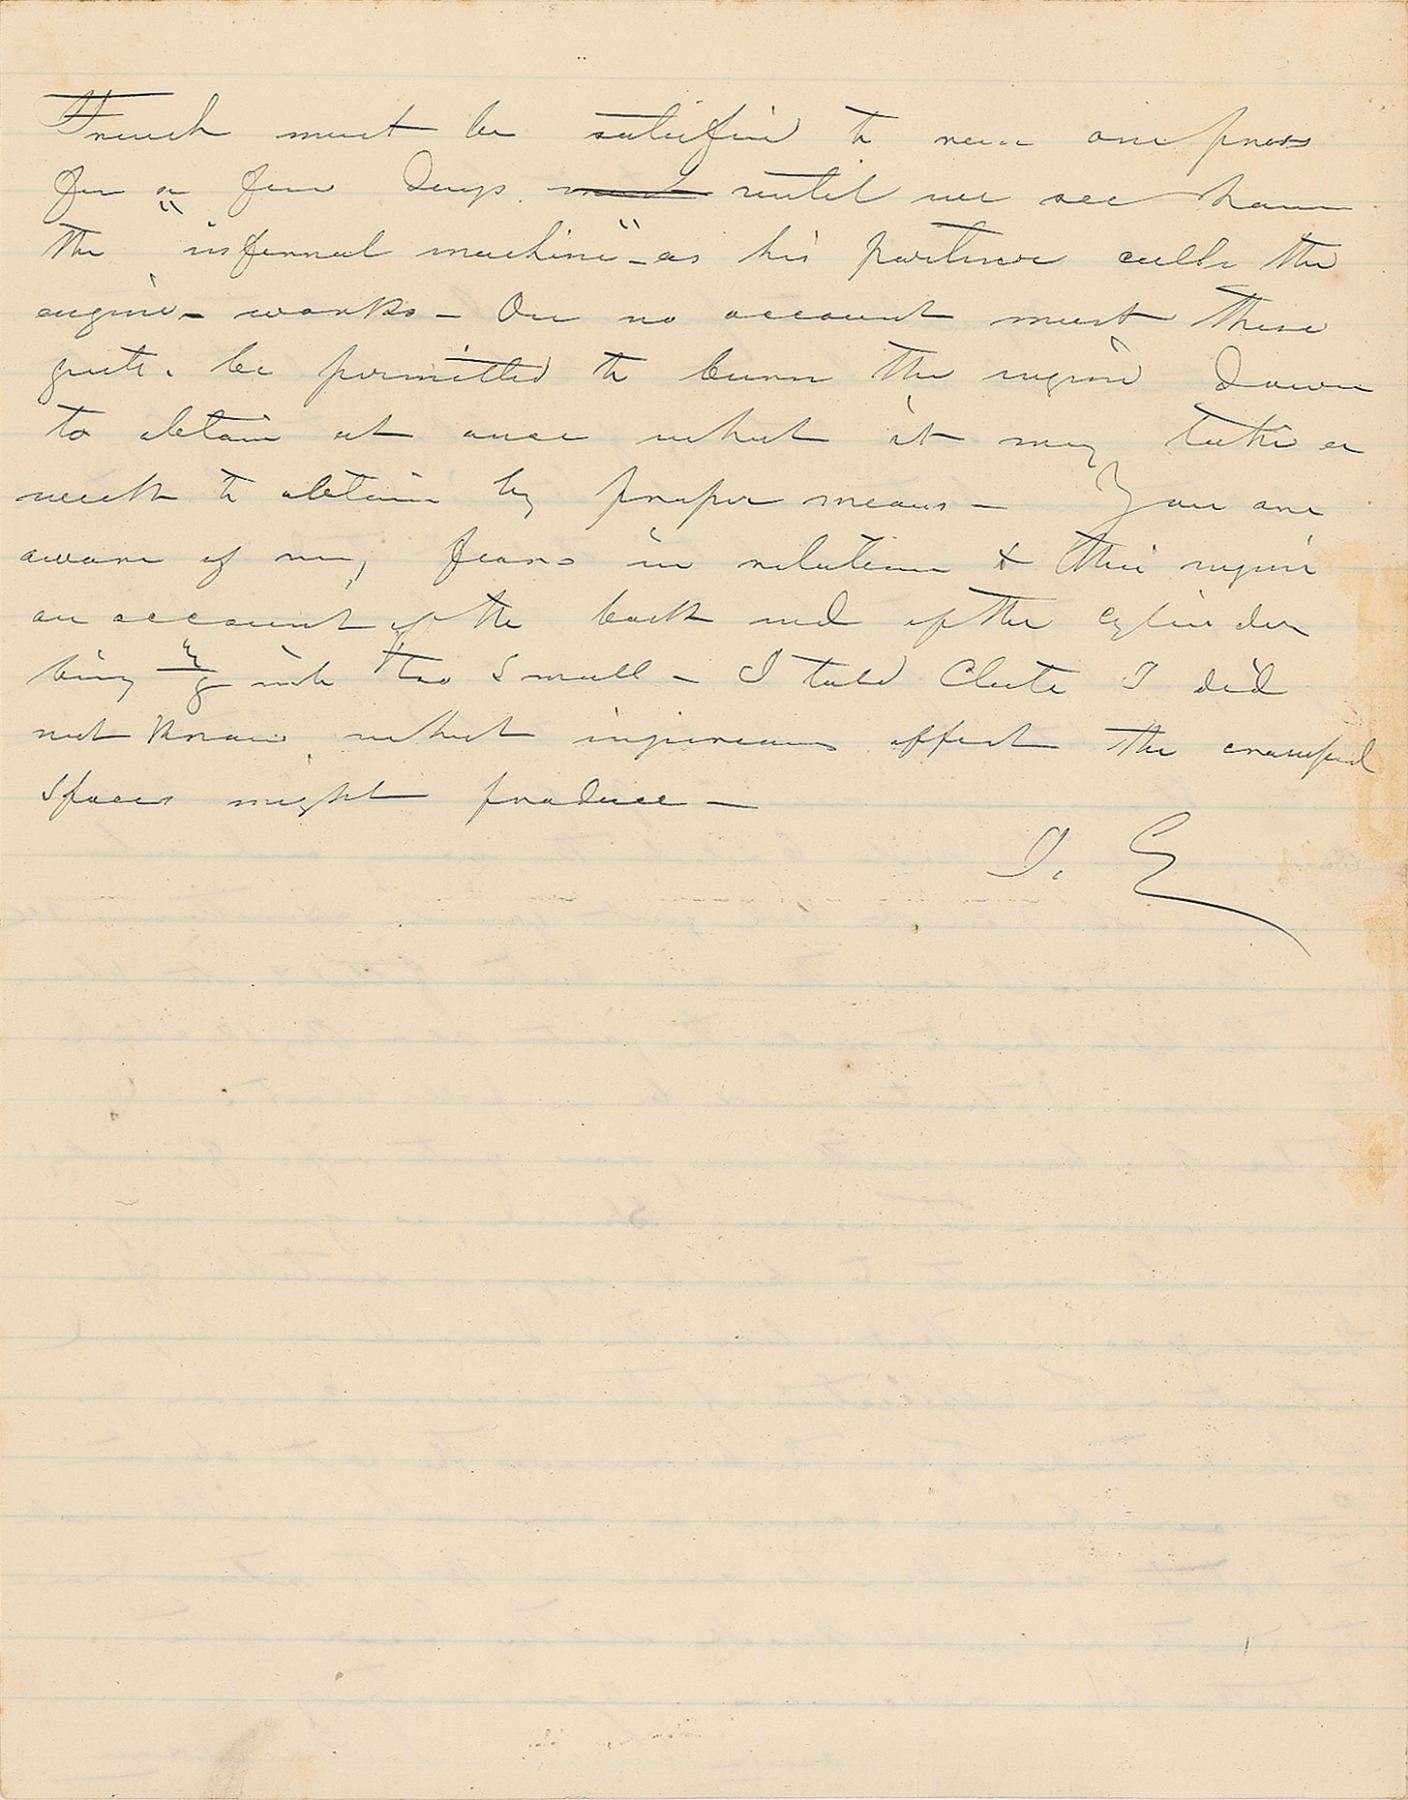 French must be satisfied to run one press
for a few days until we see how
the "infernal machine" - as his partner calls the
engine - works - On no account must these
gents. be permitted to burn the engine down
to obtain at once what it may take a
week to obtain by proper means - You are
aware of my fears in relation to this engine
on account of the back end of the cylinder
being ⅛ inch too small - I told Clute I did
not know what injurious effect the cramped
spaces might produce -
J. E